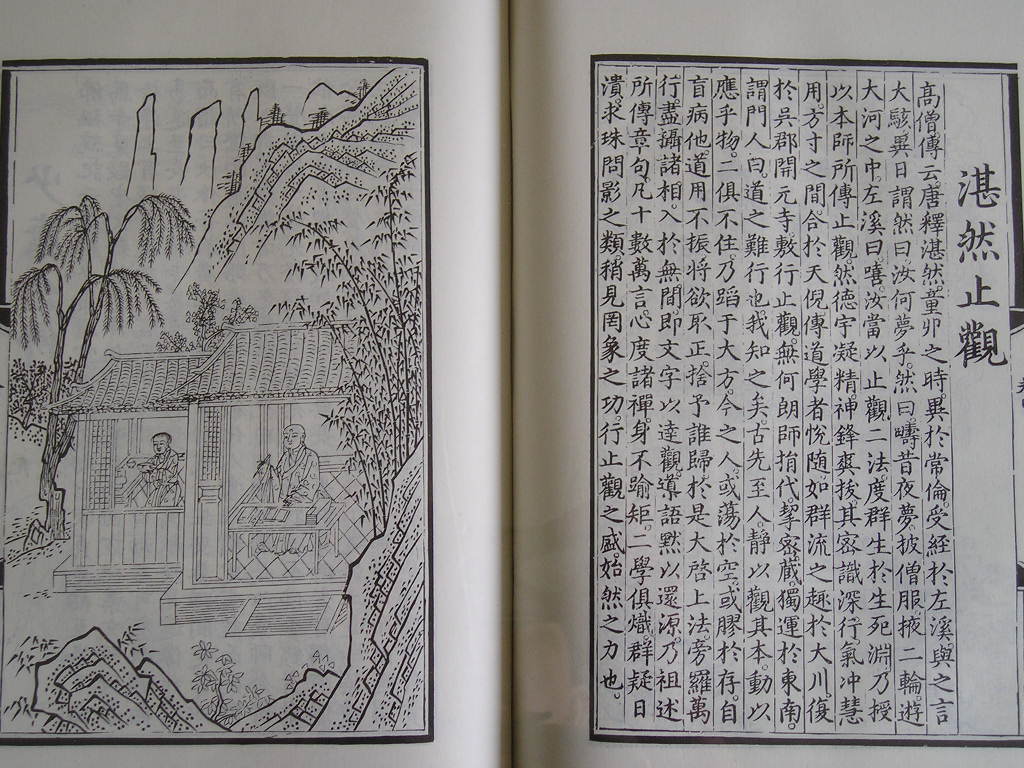 湛然止觀
高僧傳云。唐釋湛然。童丱之時。異於常倫。受經於左溪。與之言
大駭。異日謂然曰。汝何夢乎。然曰。疇昔夜夢。披僧服。掖二輪。遊
大河之中。左溪曰。嘻。汝當以止觀二法。度群生於生死淵。乃授
以本師所傳止觀。然德宇凝精。神鋒爽拔。其密識深行。氣冲慧
用。方寸之間。合於天倪。傳道學者。悅隨如群流之趣於大川。復
於吳郡開元寺敷行止觀。無何朗師捐代。挈密藏。獨運於東南。
謂門人曰。道之難行也。我知之矣。古先至人。靜以觀其本。動以
應乎物。二俱不住。乃蹈于大方。今之人或蕩於空。或膠於存。自
盲病他。道用不振。將欲取正。捨予誰歸。於是大啓上法。旁羅萬
行。盡攝諸相。入於無間。即文字以達觀。導語默以還源。乃祖述
所傳章句。凡十數萬言。心度諸禪。身不踰矩。二學俱熾。群疑日
潰。求珠問影之類。稍見罔象之功。行止觀之盛。始然之力也。